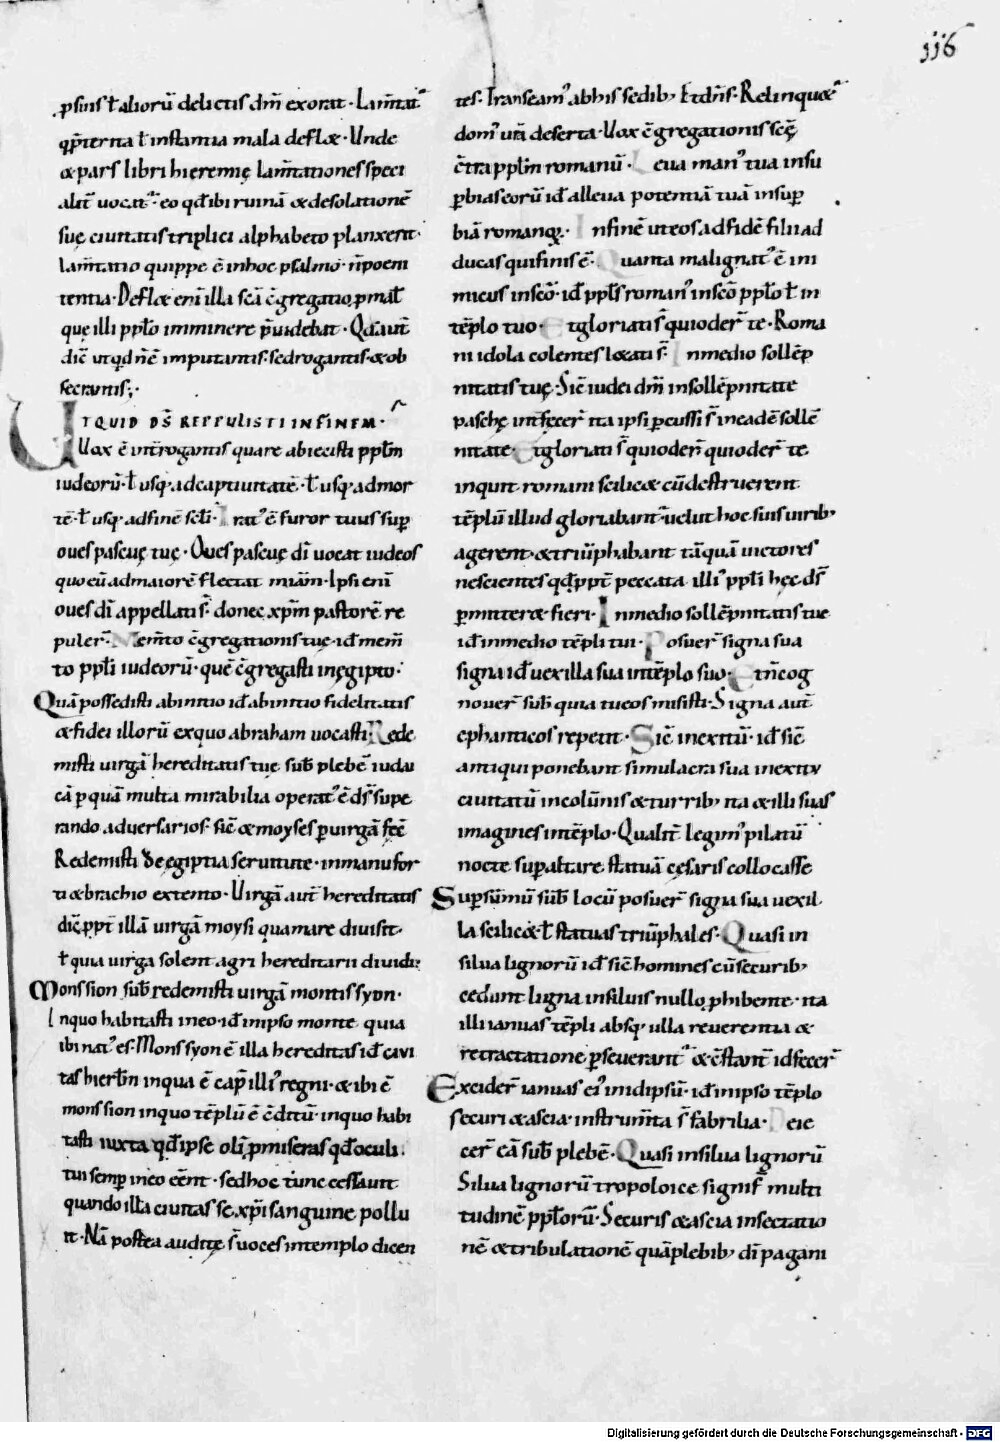 116
p̱ suis ł aliorū delictis dm̄ exorat. Lam̄tat᷑
q̱ p̄terita ł instantia mala deflet. Unde
& pars libri hieremię lam̄tationes speci
alit̄ uocat᷑. eo qđ ibi ruinā & desolationē
suę ciuitatis triplici alphabeto planxerit.
lam̄tatio quippe ē in hoc psalmo. n̄ poeni
tentia. Deflet eni illa sc̄a c̄gregatio p̱ mala
que illi pplo imminere p̄uidebat. Qđ aut̄
dic̄ ut qđ n̄ ē imputantis. sed rogantis. & ob
secrantis;
UT QUID DS̄ REPPULISTI IN FINEM.
Uox ē int̄rogantis quare abiecisti pplm̄
iudeorū. ł usq. ad captiuitatē. ł usq. ad mor
tē. ł usq. ad finē scłi. Irat᷑ ē furor tuus sup̄
oues pascuę tuę. Oues pascuę di uocat iudeos
quo eū ad maiorē flectat miam̄. Ipsi enī
oues di appellati s̄. donec xpm̄ pastorē re
puler̄. Mem̄to c̄gregationis tuę. id mem̄
to ppłi iudeorū. quē c̄gregasti in ęgipto.
Quā possedisti ab initio id ab initio fidelitatis
& fidei illorū ex quo abraham uocasti. Rede
misti uirgā hereditatis tuę sub plebē iudai
cā p̱ quā multa mirabilia operat᷑ ē ds̄ supe
rando aduersarios. sic̄ & moyses p̱ uirgā fec̄
Redemisti de egiptia seruitute. in manu for
ti & brachio extento. Uirgā aut̄ hereditatis
dic̄ ppt̄ illā uirgā moysi qua mare diuisit.
ł quia uirga solent agri hereditarii diuidi.
Mons sion sub redemisti uirgā montis syon.
In quo habitasti in eo. id in ipso monte quia
ibi nat᷑ es. Mons syon ē illa hereditas id ciui
tas hierlm̄ in qua ē cap̄ illi᷑ regni. & ibi ē
mons sion in quo tēplū ē c̄ditū. in quo habi
tasti iuxta qđ ipse oli p̱miseras qđ oculi
tui semp̱ in eo eēnt. sed hoc tunc cessauit
quando illa ciuitas se xp̄i sanguine pollu
it. Nā postea auditę s̄ uoces in templo dicen
tes. Transeam᷑ ab his sedib; Et dn̄s. Relinquet᷑
dom᷑ ur̄a deserta. Uox c̄gregationis sc̄ę
c̄tra pplm̄ romanū. Leua man᷑ tua in su
p̱bias eorū id alleua potentiā tuā in sup̱
biā romanoꝝ. In finē ut eos ad fidē filii ad
ducas qui finis ē. Quanta malignat᷑ ē ini
micus in sc̄o. id pplȳs roman᷑ in sc̄o pplo ł in
tēplo tuo. Et gloriati s̄ qui oder̄ te. Roma
ni idola colentes locati s̄. In medio sollēp
nitatis tuę. Sic̄ iudei dm̄ in sollēpnitate
paschę intfecer̄ ita ipsi p̱cussi s̄ in eadē sollē
nitate. Et gloriati s̄ qui oder̄ qui oder̄ te
inquit romani scilicet cū destruerent
tēplū illud gloriabant᷑ uelut hoc suis uirib;
agerent. & triūphabant tāquā uictores
nescientes qđ ppt̄ peccata illi᷑ ppłi hęc ds̄
p̱mitteret fieri. In medio sollēpnitatis tue
id in medio tēpli tui. Posuer̄ signa sua
signa id uexilla sua in tēplo suo. Et n̄ cog
nouer̄ sub quia tu eos misisti. Signa aut̄
ephanticos repetit. Sic̄ in exitū. id sic̄
antiqui ponebant simulacra sua in exitu
ciuitatū incolumis & turrib; ita & illi suas
imagines in tēplo. Qualit̄ legim᷑ pilatū
nocte sup̱ altare statuā cęsaris collocasse
Sup̱ sūmū sub locū posuer̄ signa sua uexil
la scilicet ł statuas triūphales. Quasi in
silua lignorū id sic̄ homines cū securib;
cedunt ligna in siluis nullo p̱hibente. ita
illi ianuas tēpli absq. ulla reuerentia &
retractatione p̱seuerant᷑ & c̄stant̄ id fecer̄
Excider̄ ianuas ei᷑ in idipsū. id in ipso tēplo
securi & ascia. instrum̄ta s̄ fabrilia. Deie
cer̄ eā sub plebē. Quasi in silua lignorū
Silua lignorū tropoloice signif̄ multi
tudinē pplorū. Securis & ascia insectatio
nē & tribulationē quā plebib; di pagani
Digitalisierung gefördert durch die Deutsche Forschungsgemeinschaft - DFG